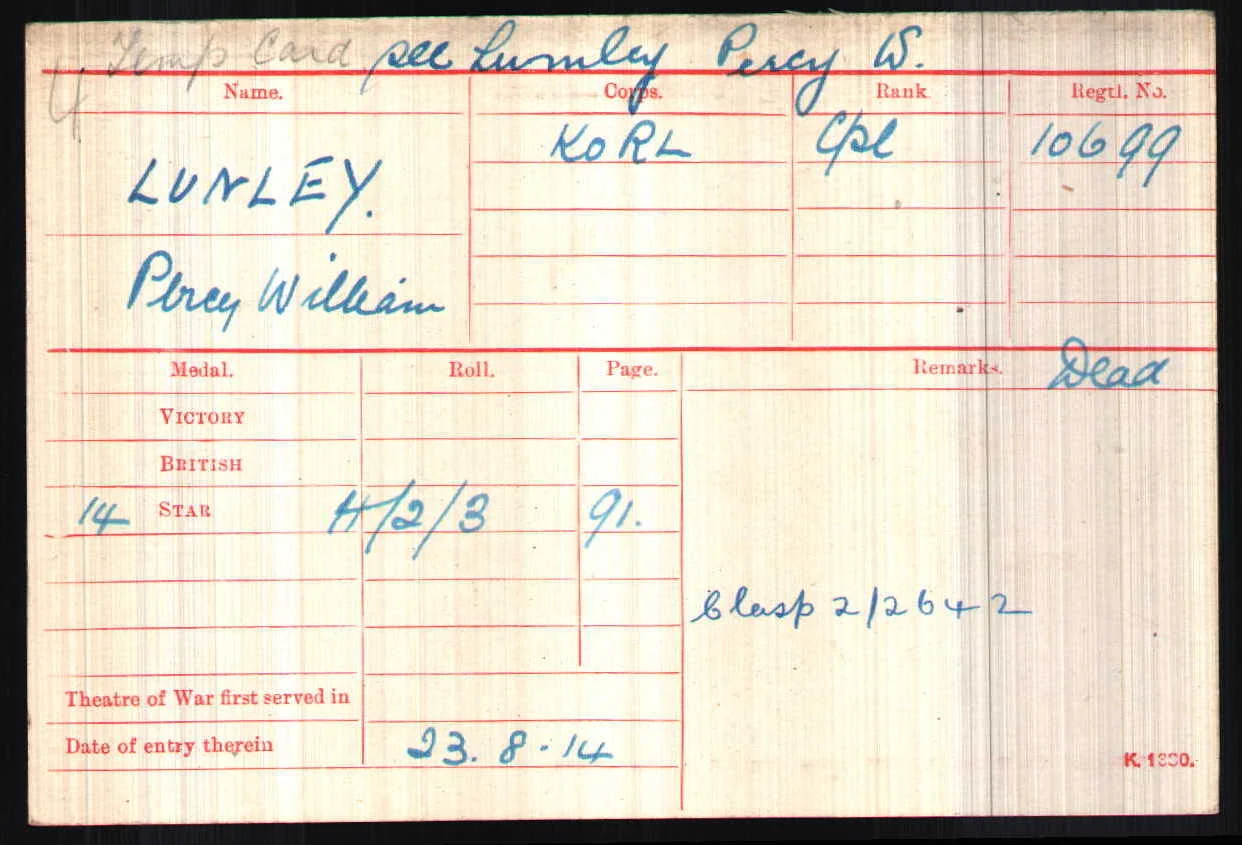 Temp Card see Lumley Percy W.
Name. Corps. Rank Regtl. No.
LUNLEY. KORL Cpl 10699
Percy William
Medal. Roll. Page. Remarks. Dead
VICTORY
BRITISH
14 STAR H/2/3 91.
Clasp 2/2642
Theatre of War first served in
Date of entry therein 23.8.14
K. 1380.